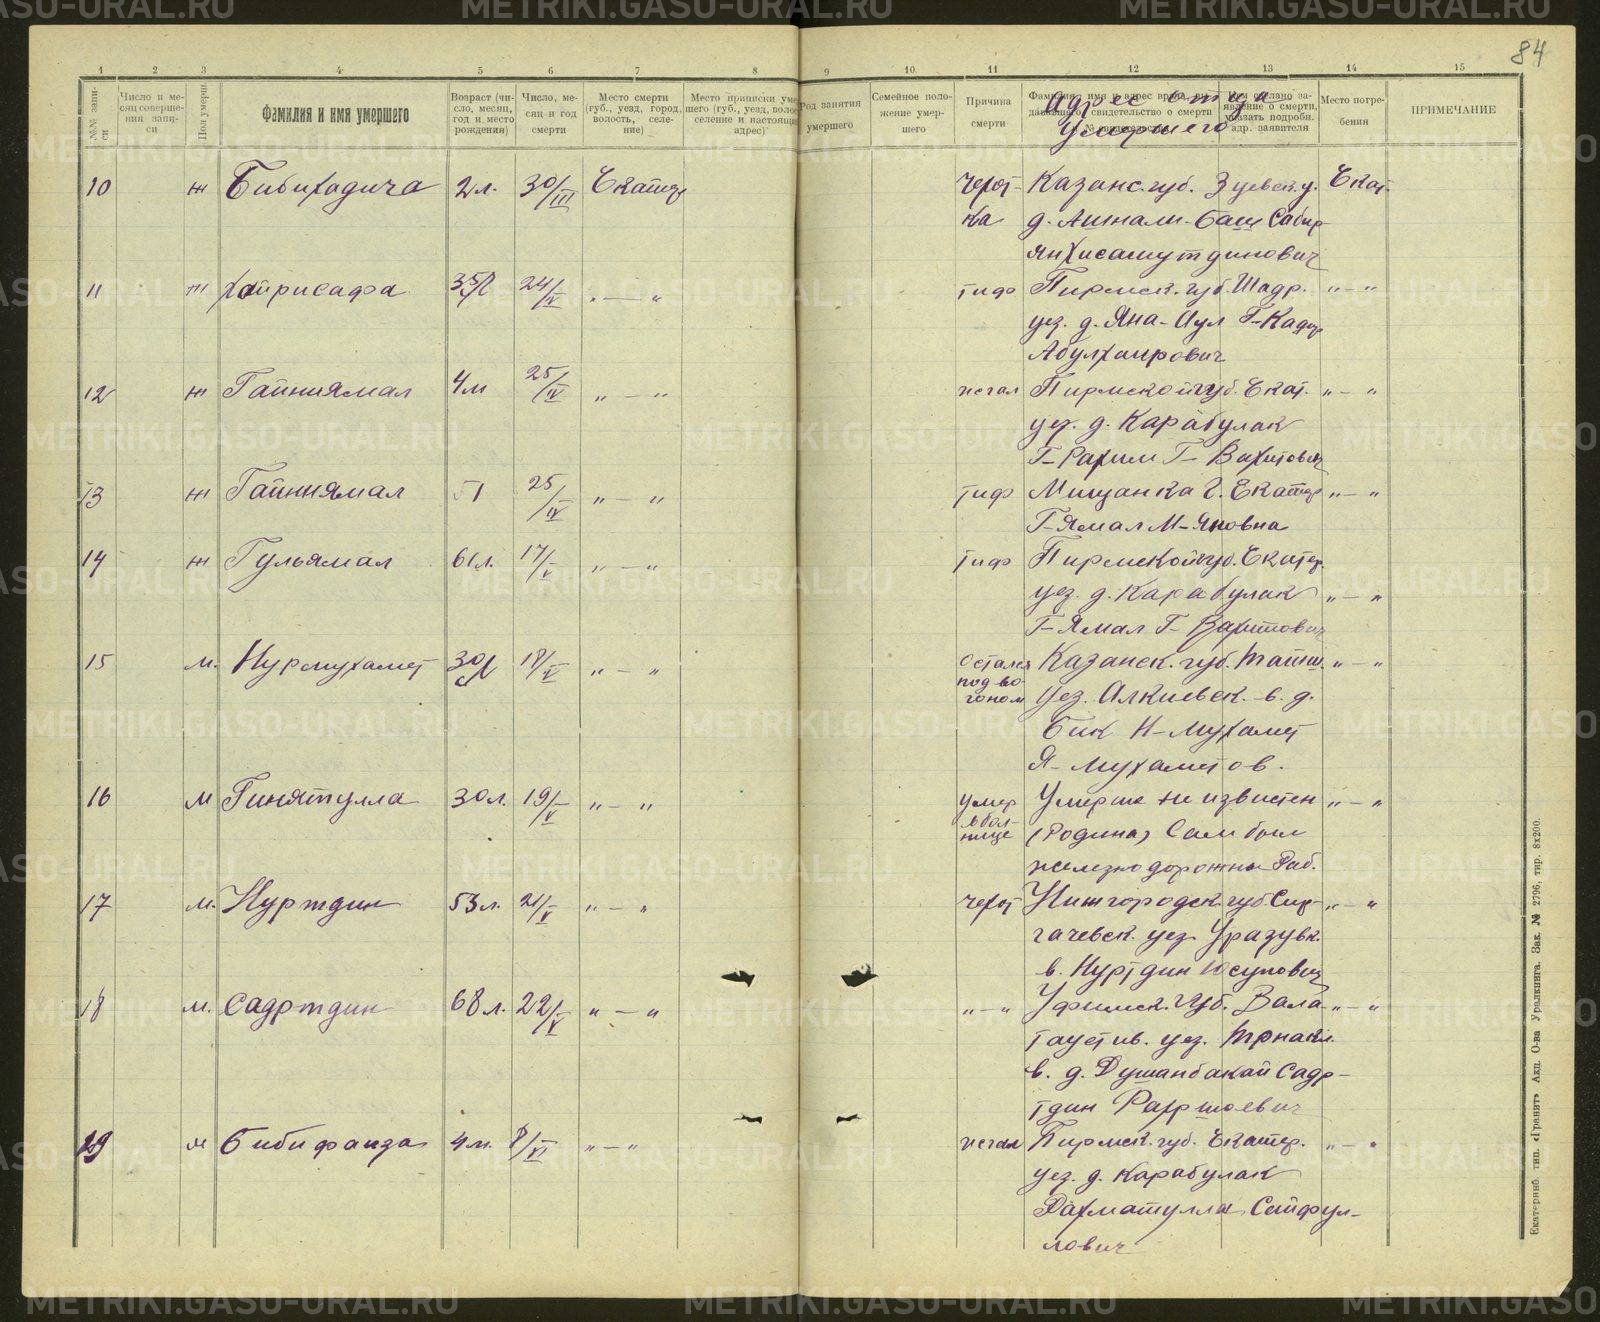 84
1 2 3 4 5 6 7 8 9 10 11 12 13 14 15
№№ запи-
си
Число и ме-
сяц соверше-
ния запи-
си
Пол умерш.
Фамилия и имя умершего
Возраст (чи-
сло, месяц,
год и место
рождения)
Число, ме-
сяц и год
смерти
Место смерти
(губ., уезд, город,
волость, селе-
ние)
Место приписки уме
шего (губ., уезд, воло
селение и настоящи
адрес)
Род занятия
умершего
Семейное поло-
жение умер-
шего
Причина
смерти
Адрес отца
умершего
Место погре-
бения
ПРИМЕЧАНИЕ
10 ж Бибихадича 2 л. 30/III Екатер
черот-
ка
Казанс. губ. Зуевск. у.
д. Ашнали-баш Сабир
ян Хисамутдинович
Екат.
11 Хайрисафа 35 л 24/IV „ — „ тиф
Пермск. губ. Шадр.
уез. д. Яна-Аул Г-Кадыр
Абулхаирович
„ — „
12 ж Гайниямал 4 м 25/IV „ — „
Пермской губ. Екат.
уез. д. Карабулак
Г-Рахим Г- Вахитович
„ — „
13 ж Гайниямал 51 25/IV „ — „ тиф
Мещанка г. Екатер
Г-Ямал М-Яновна
„ — „
14 ж Гульямал 61 л. 17/V „ — „ тиф
Пермской губ. Екатер.
уез. д. Карабулак
Г-Ямал Г- Вахитович
„ — „
15 м. Нурмухамет 30 л 18/V „ — „
остался
под ва-
гоном
Казанск. губ.
уез. Алкиевск. в. д.
Бик Н-Мухамет
Я-Мухаметов.
„ — „
16 м Гинятулла 30 л. 19/V „ — „
умер
в бол-
нице
Умерше не известен
(Родина) Сам был
железнодорожны Раб.
„ — „
17 м. Нуртдин 53 л. 21/V „ — „ черот
Нижгородск. губ. Сер-
гачевск. уез. Уразувк.
в. Нуртдин Юсупович
„ — „
18 м. Садртдин 68 л. 22/V „ — „ „ — „
Уфимск. губ. Зала-
таустив. уез.
в. д. Душанбакай Садр-
тдин
„ — „
19 Бибифаиза 4 м. 8/VI „ — „
Пермск. губ. Екатер.
уез. д. Карабулак
Рахматулла Сайфул-
лович
„ — „
Екатеринб. тип. «Гранит» Акц. О-ва Уралкнига. Зак. № 2796, тир. 8х200.
METRIKI.GASO-URAL.RU